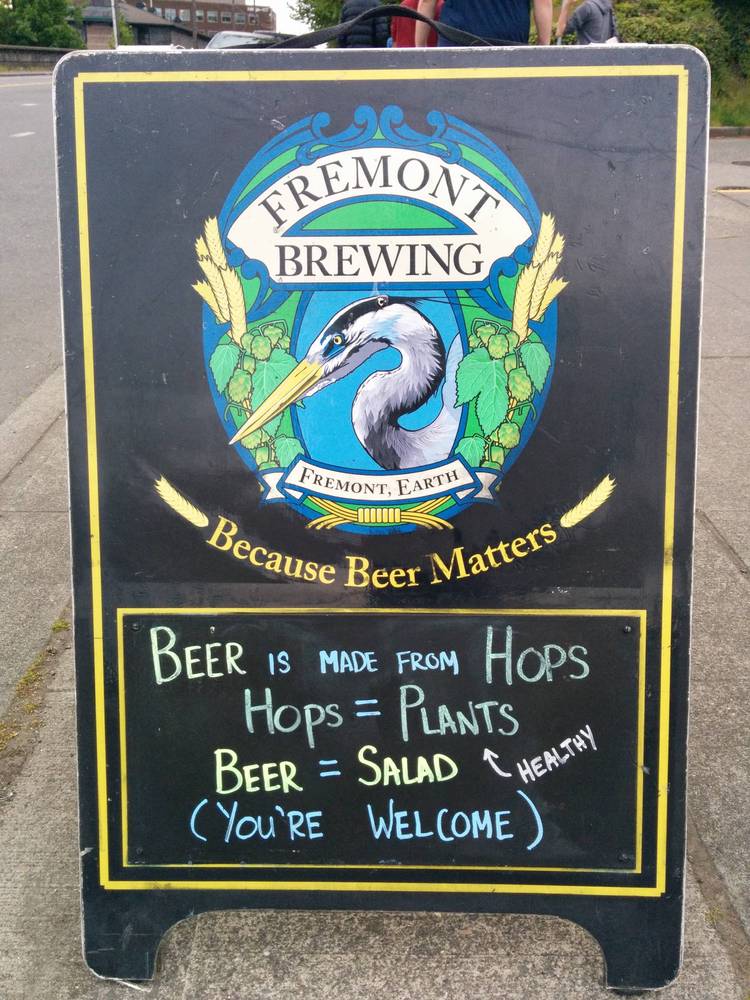 FREMONT
BREWING
FREMONT, EARTH
Because Beer Matters
BEER IS MADE FROM HOPS
HOPS = PLANTS
BEER = SALAD ↖ HEALTHY
(YOU'RE WELCOME)